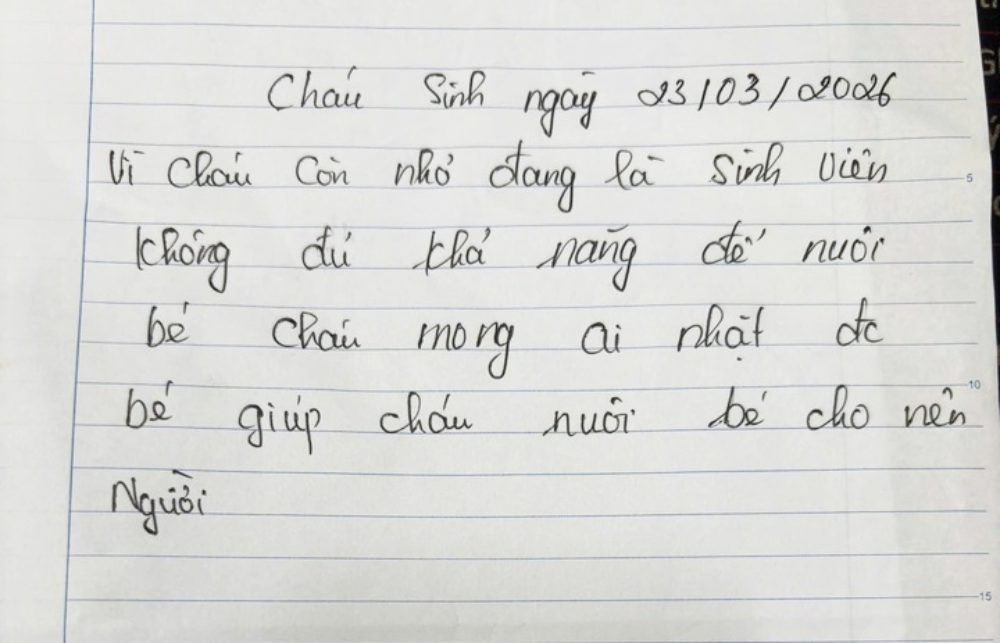 Cháu sinh ngày 23/03/2026
Vì cháu còn nhỏ đang là sinh viên
không đủ khả năng để nuôi
bé cháu mong ai nhặt đc
bé giúp cháu nuôi bé cho nên
Người
5
10
15